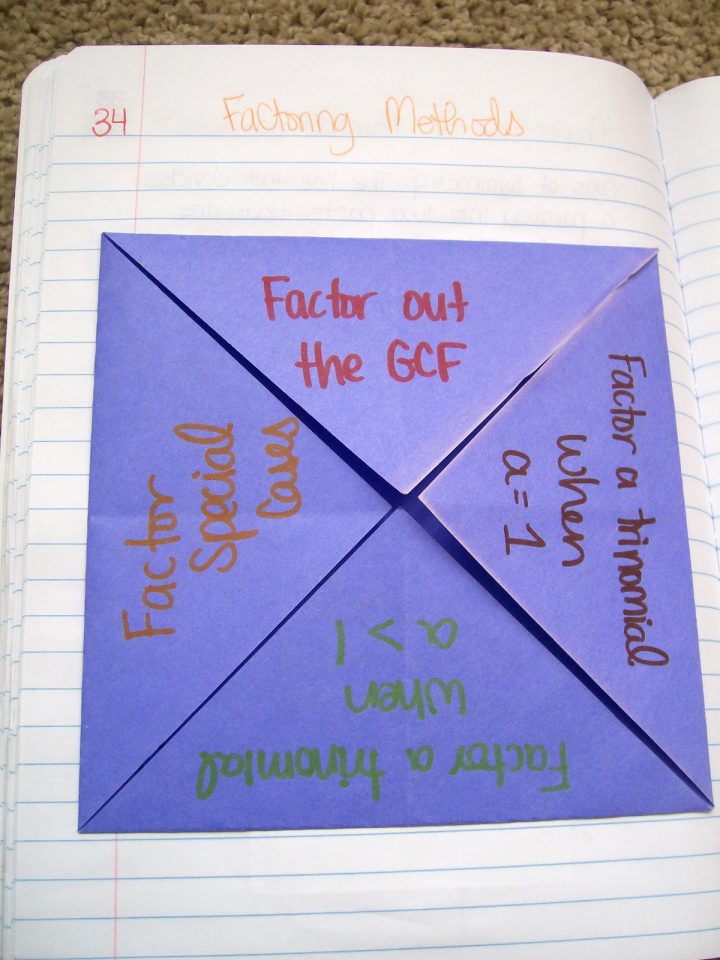 34
Factoring Methods
Factor out
the GCF
Factor a trinomial
when
a = 1
Factor a trinomial
when
a > 1
Factor
Special
Cases